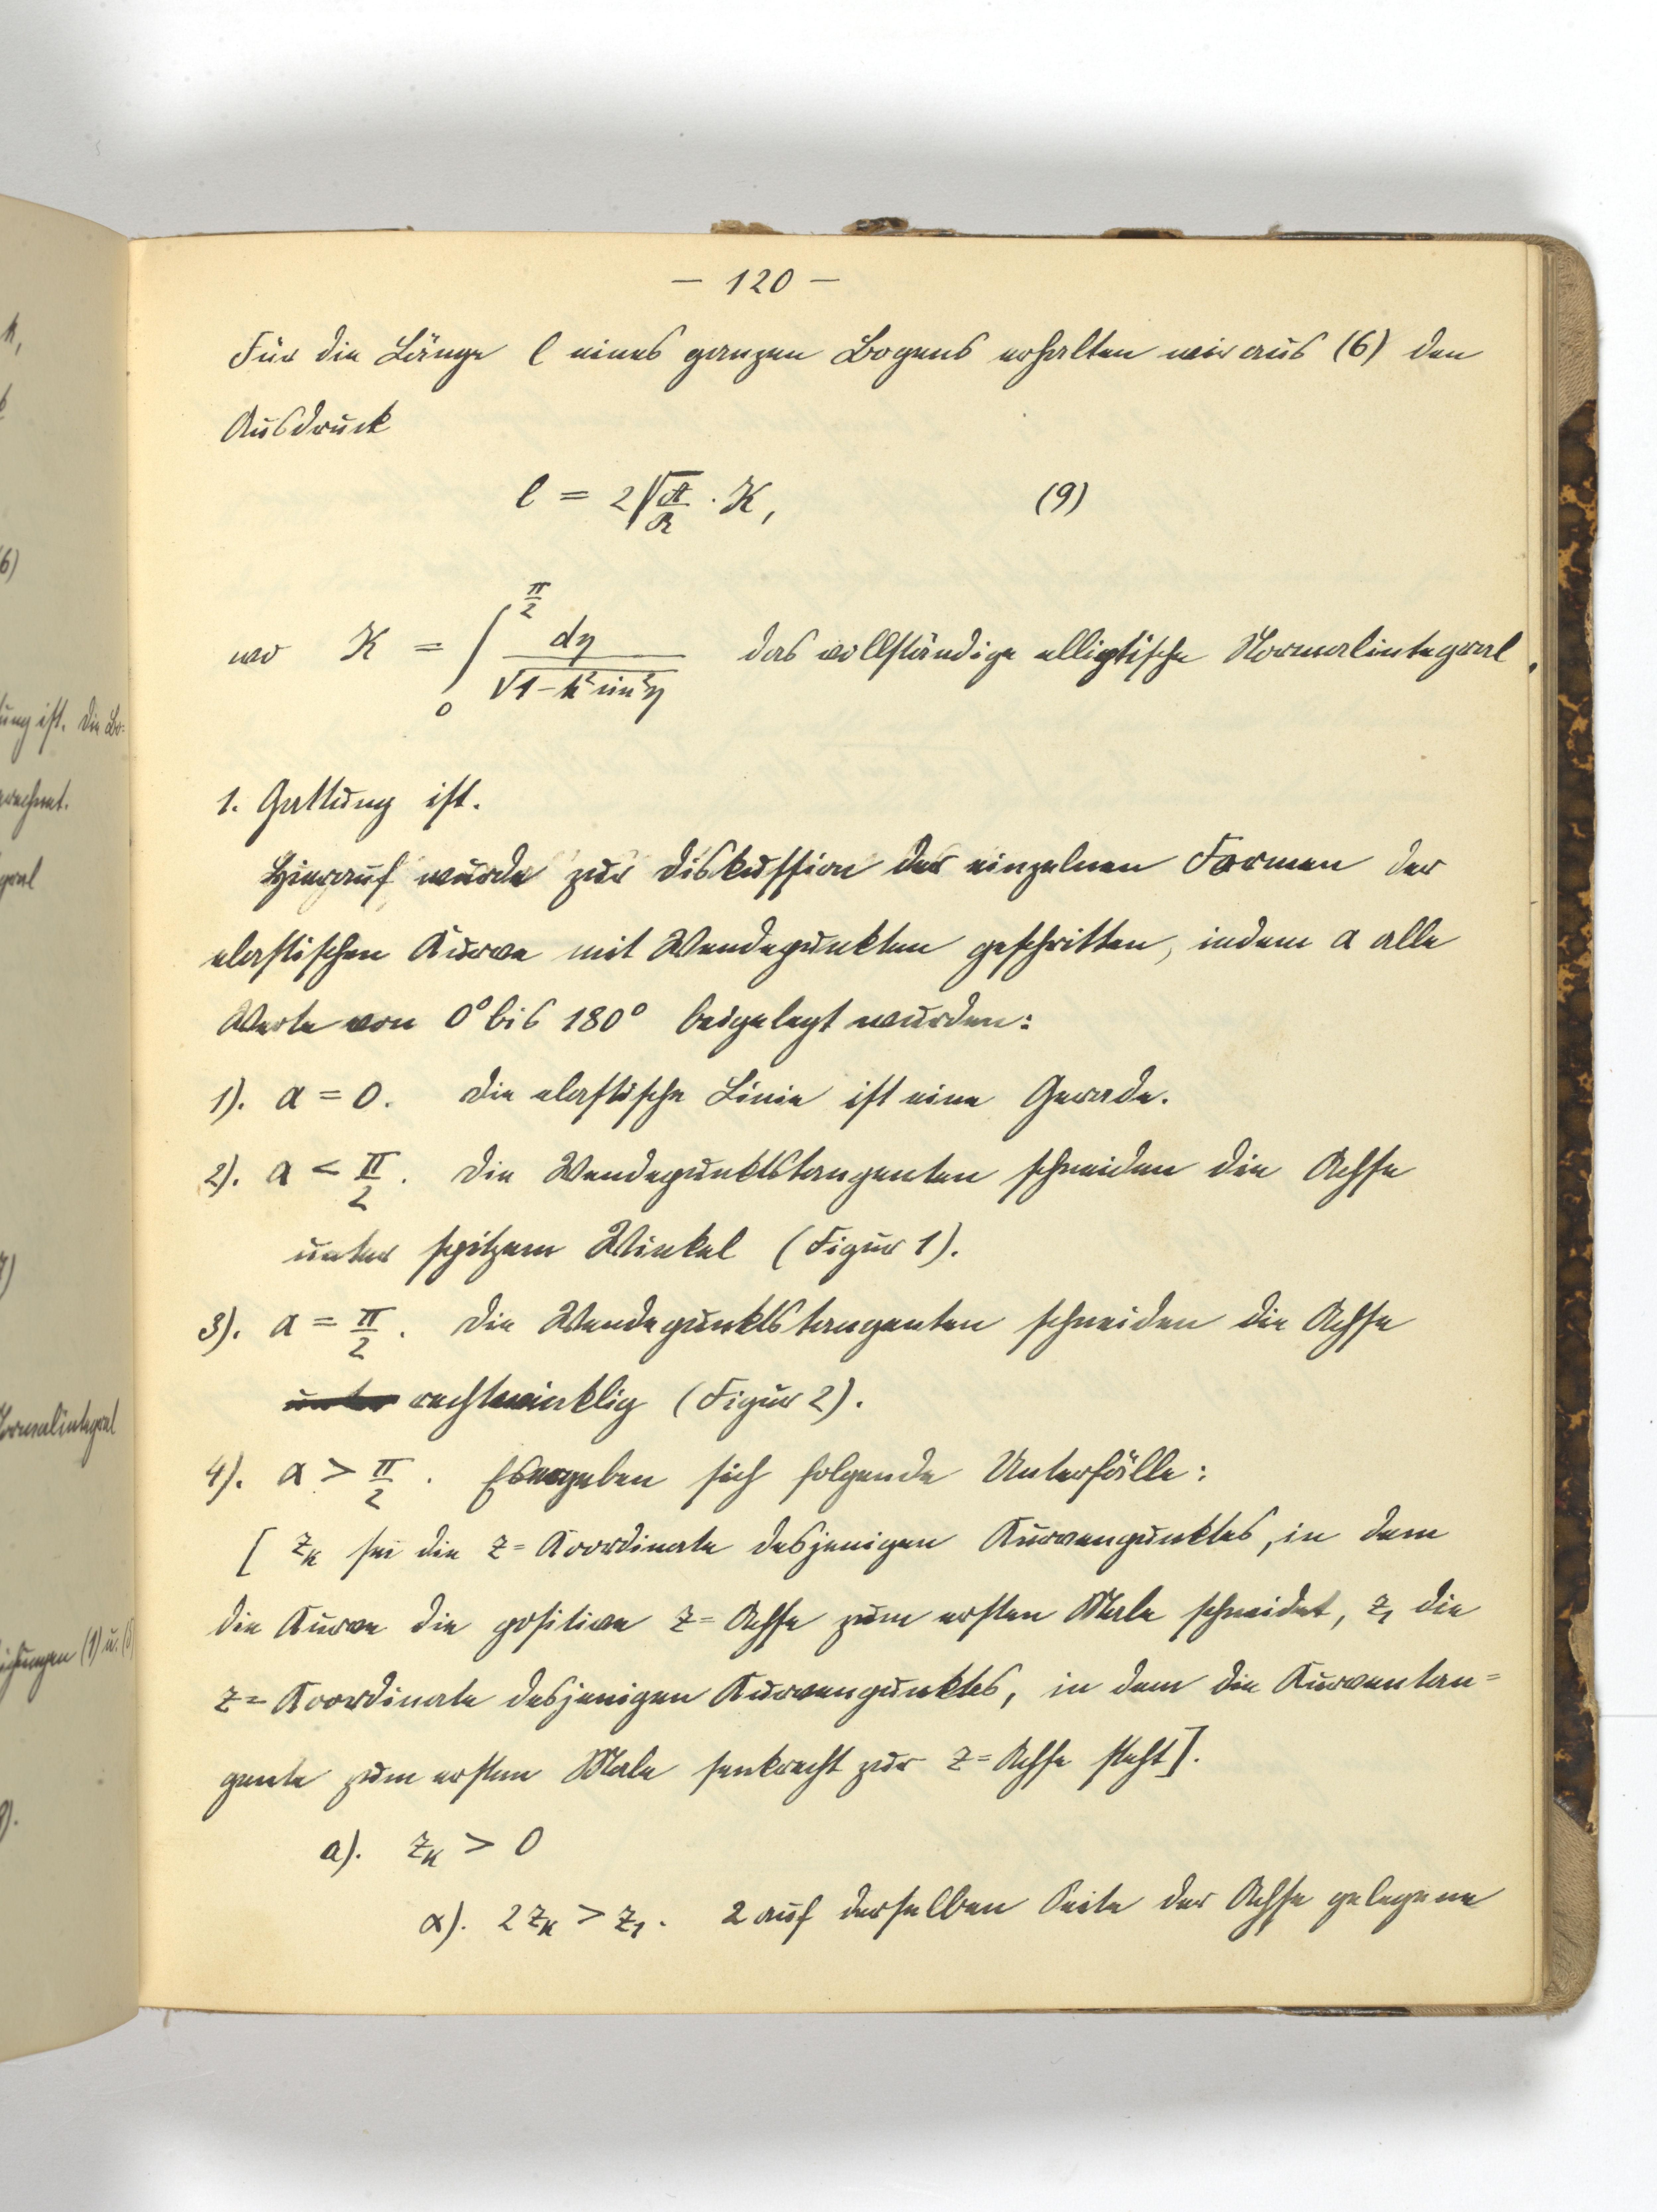 — 120 —
Für die Länge l eines ganzen Bogens erhalten wir aus (6) den
Ausdruck
l = 2√(A/R) · K, (9)
wo K = ∫₀^(π/2) dη / √(1 − k² sin² η) das vollständige elliptische Normalintegral
1. Gattung ist.
Hierauf wurde zur Diskussion der einzelnen Formen der
elastischen Kurve mit Wendepunkten geschritten, indem α alle
Werte von 0° bis 180° beigelegt wurden:
1). α = 0. Die elastische Linie ist eine Gerade.
2). α < π/2. Die Wendepunktstangenten schneiden die Achse
unter spitzem Winkel (Figur 1).
3). α = π/2. Die Wendepunktstangenten schneiden die Achse
rechtwinklig (Figur 2).
4). α > π/2. Es ergeben sich folgende Unterfälle:
[ z_k sei die z=Koordinate desjenigen Kurvenpunktes, in dem
die Kurve die positive z=Achse zum ersten Male schneidet, z₁ die
z=Koordinate desjenigen Kurvenpunktes, in dem die Kurventan=
gente zum ersten Male senkrecht zur z=Achse steht].
a). z_k > 0
α). 2 z_k > z₁. 2 auf derselben Seite der Achse gelegene